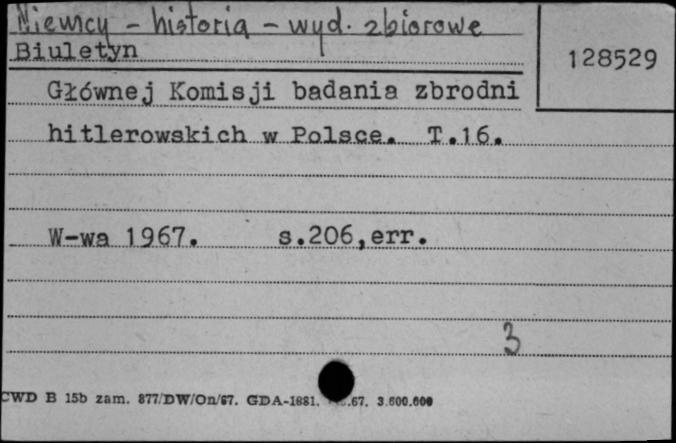 Niemcy - historia - wyd. zbiorowe
Biuletyn
128529
Głównej Komisji badania zbrodni
hitlerowskich w Polsce. T.16.
W-wa 1967. s.206,err.
3
CWD B 15b zam. 877/DW/On/67. GDA-1881. .67. 3.600.000